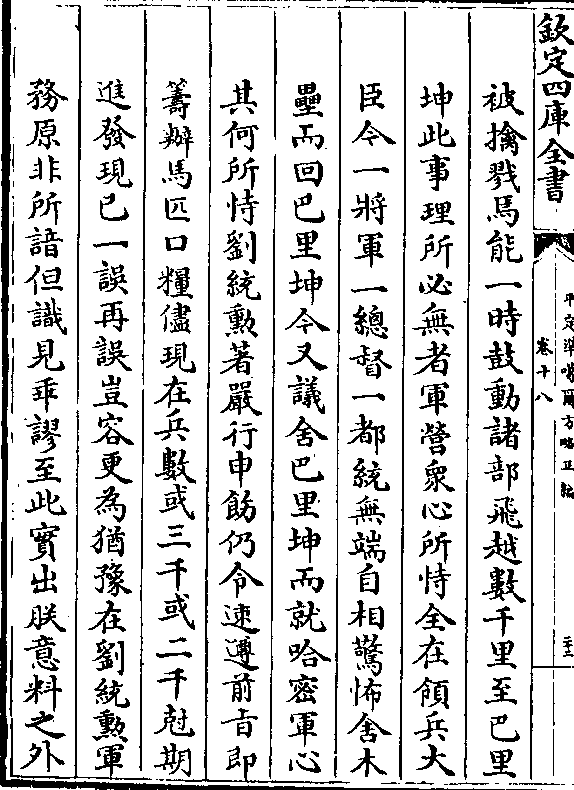 欽定四庫全書
平定準噶爾方略正編
卷十八
被擒戮焉能一時鼓動諸部飛越數千里至巴里
坤此事理所必無者軍營衆心所恃全在領兵大
臣今一將軍一總督一都統無端自相驚怖舍木
壘而回巴里坤今又議舍巴里坤而就哈密軍心
其何所恃劉統勲著嚴行申飭仍令速遵前㫖即
籌辦馬匹口糧儘現在兵數或三千或二千尅期
進發現已一誤再誤豈容更為猶豫在劉統勲軍
務原非所諳但識見乖謬至此實出朕意料之外